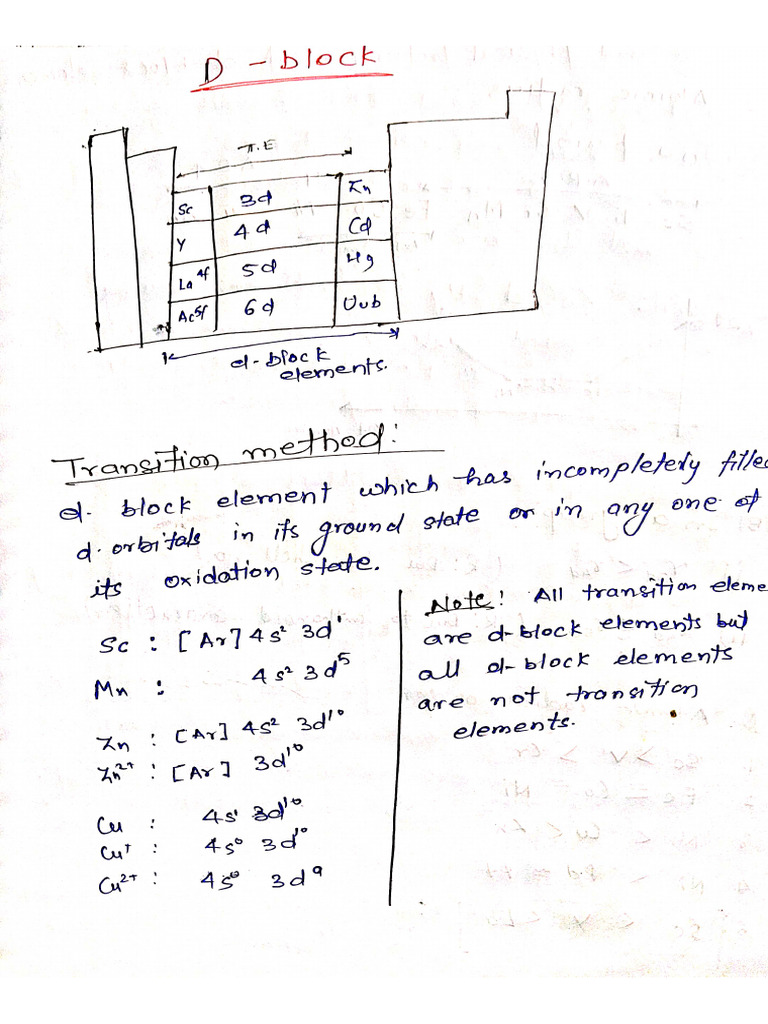 D - block
T.E
Sc 3d Zn
Y 4d Cd
La 4f 5d Hg
Ac 5f 6d Uub
d-block
elements.
Transition method:
d. block element which has incompletely filled
d. orbitals in its ground state or in any one of
its oxidation state.
Sc : [Ar] 4s² 3d¹
Mn : 4s² 3d⁵
Zn : [Ar] 4s² 3d¹⁰
Zn²⁺ : [Ar] 3d¹⁰
Cu : 4s¹ 3d¹⁰
Cu⁺ : 4s⁰ 3d¹⁰
Cu²⁺ : 4s⁰ 3d⁹
Note: All transition eleme
are d-block elements but
all d-block elements
are not transition
elements.